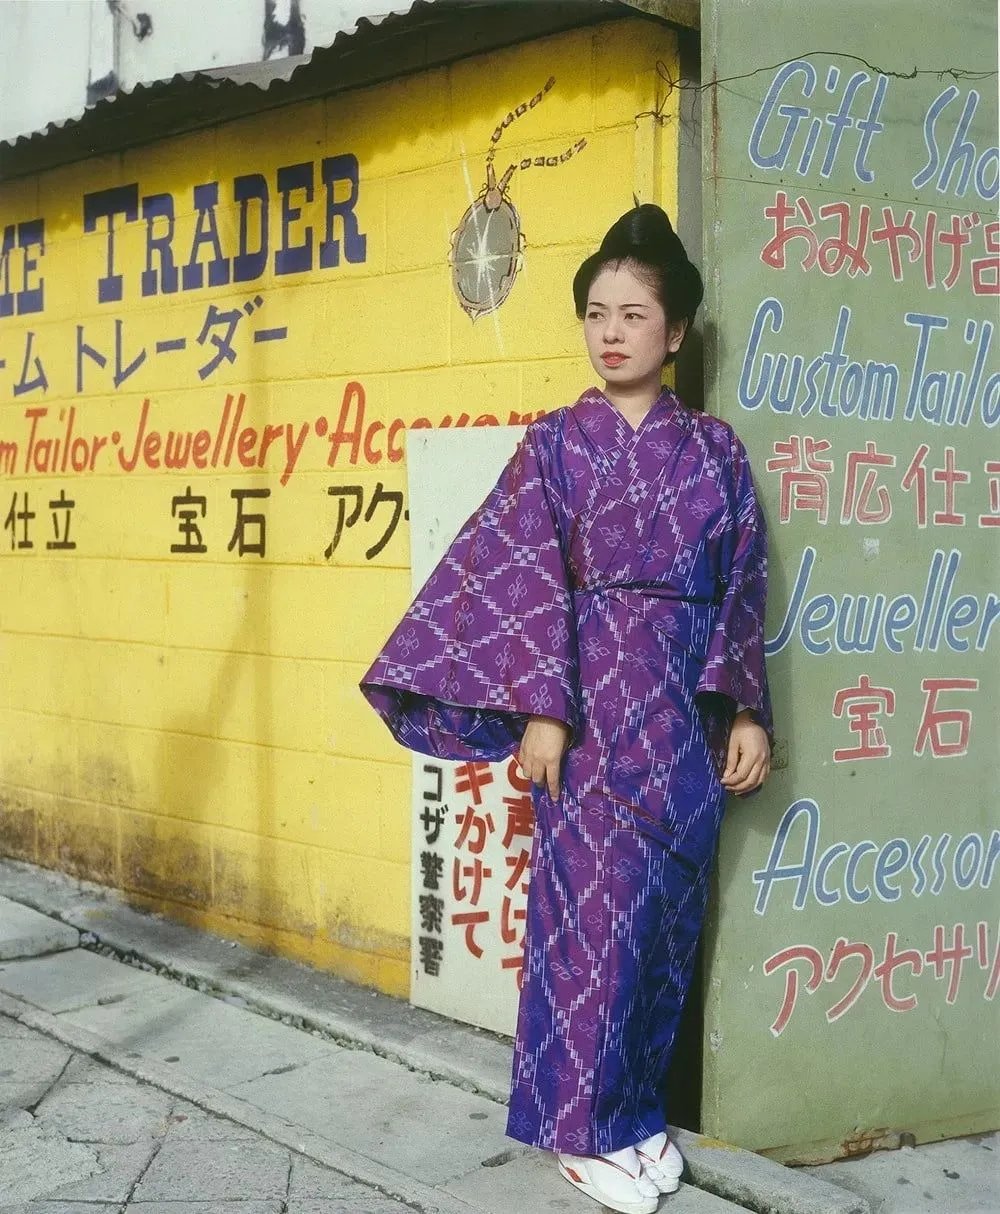 ME TRADER
ーム トレーダー
m Tailor・Jewellery・Acc
仕立 宝石 アク
声かけて
キかけて
コザ警察署
Gift Sho
おみやげ品
Custom Tailo
背広仕立
Jeweller
宝石
Accessor
アクセサリ